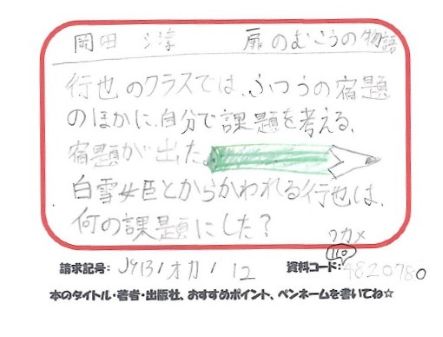 岡田 淳 扉のむこうの物語
行也のクラスでは、ふつうの宿題
のほかに、自分で課題を考える、
宿題が出た
白雪女臣とからかわれる行也は、
何の課題にした?
ワカメ
請求記号: J913/オカ/12 資料コード:4820780
本のタイトル・著者・出版社、おすすめポイント、ペンネームを書いてね☆